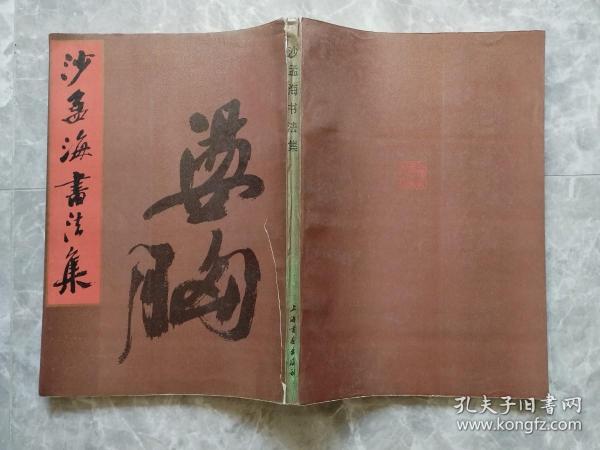 沙孟海書法集
盪胸
沙孟海书法集
上海书画出版社
孔夫子旧書网
www.kongfz.com